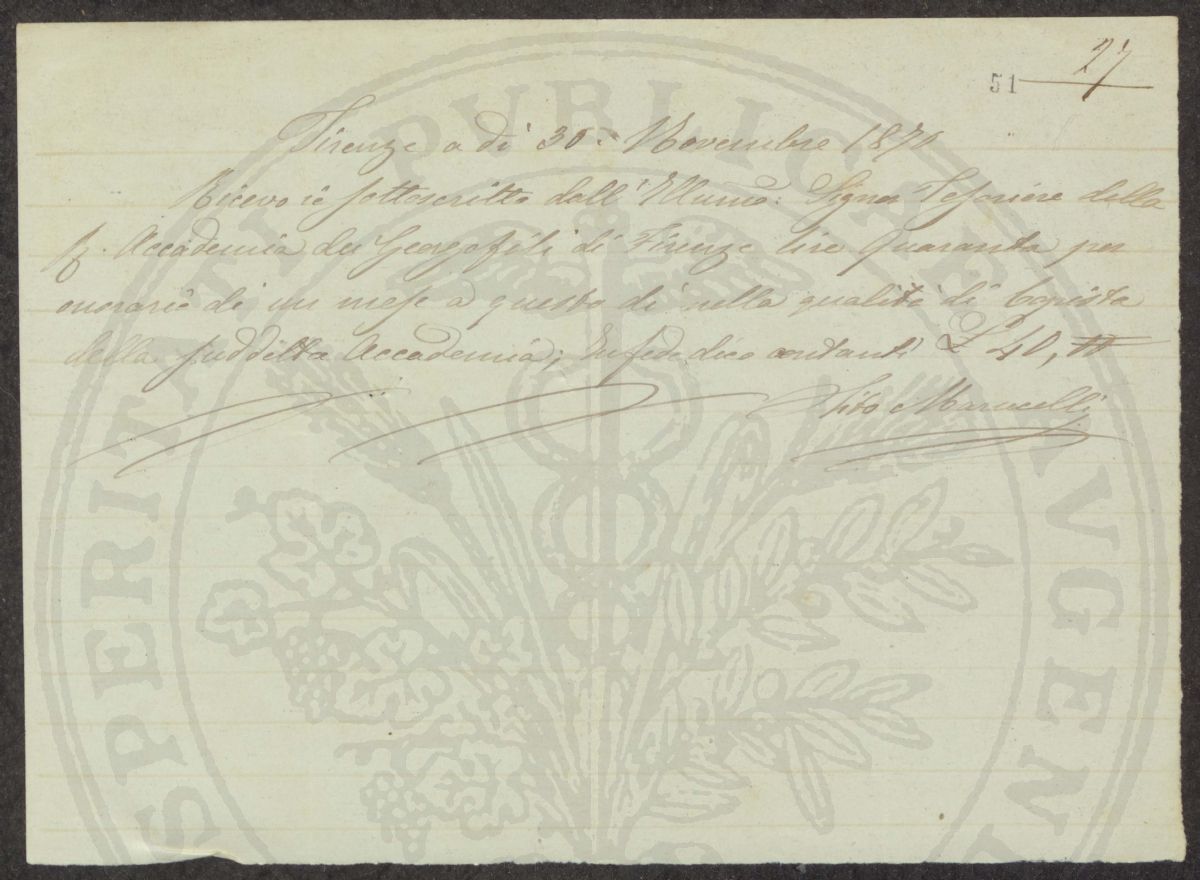 27
51
Firenze a dì 30. Novembre 1870
Ricevo io sottoscritto dall' Illumo: Signor Tesoriere della
R. Accademia dei Georgofili di Firenze lire Quaranta per
onorario di un mese a questo dì nella qualità di Copista
della suddetta Accademia; In fede dico contanti L 40,
Tito Marucelli
PROSPERITATI PVBLICAE AVGEN